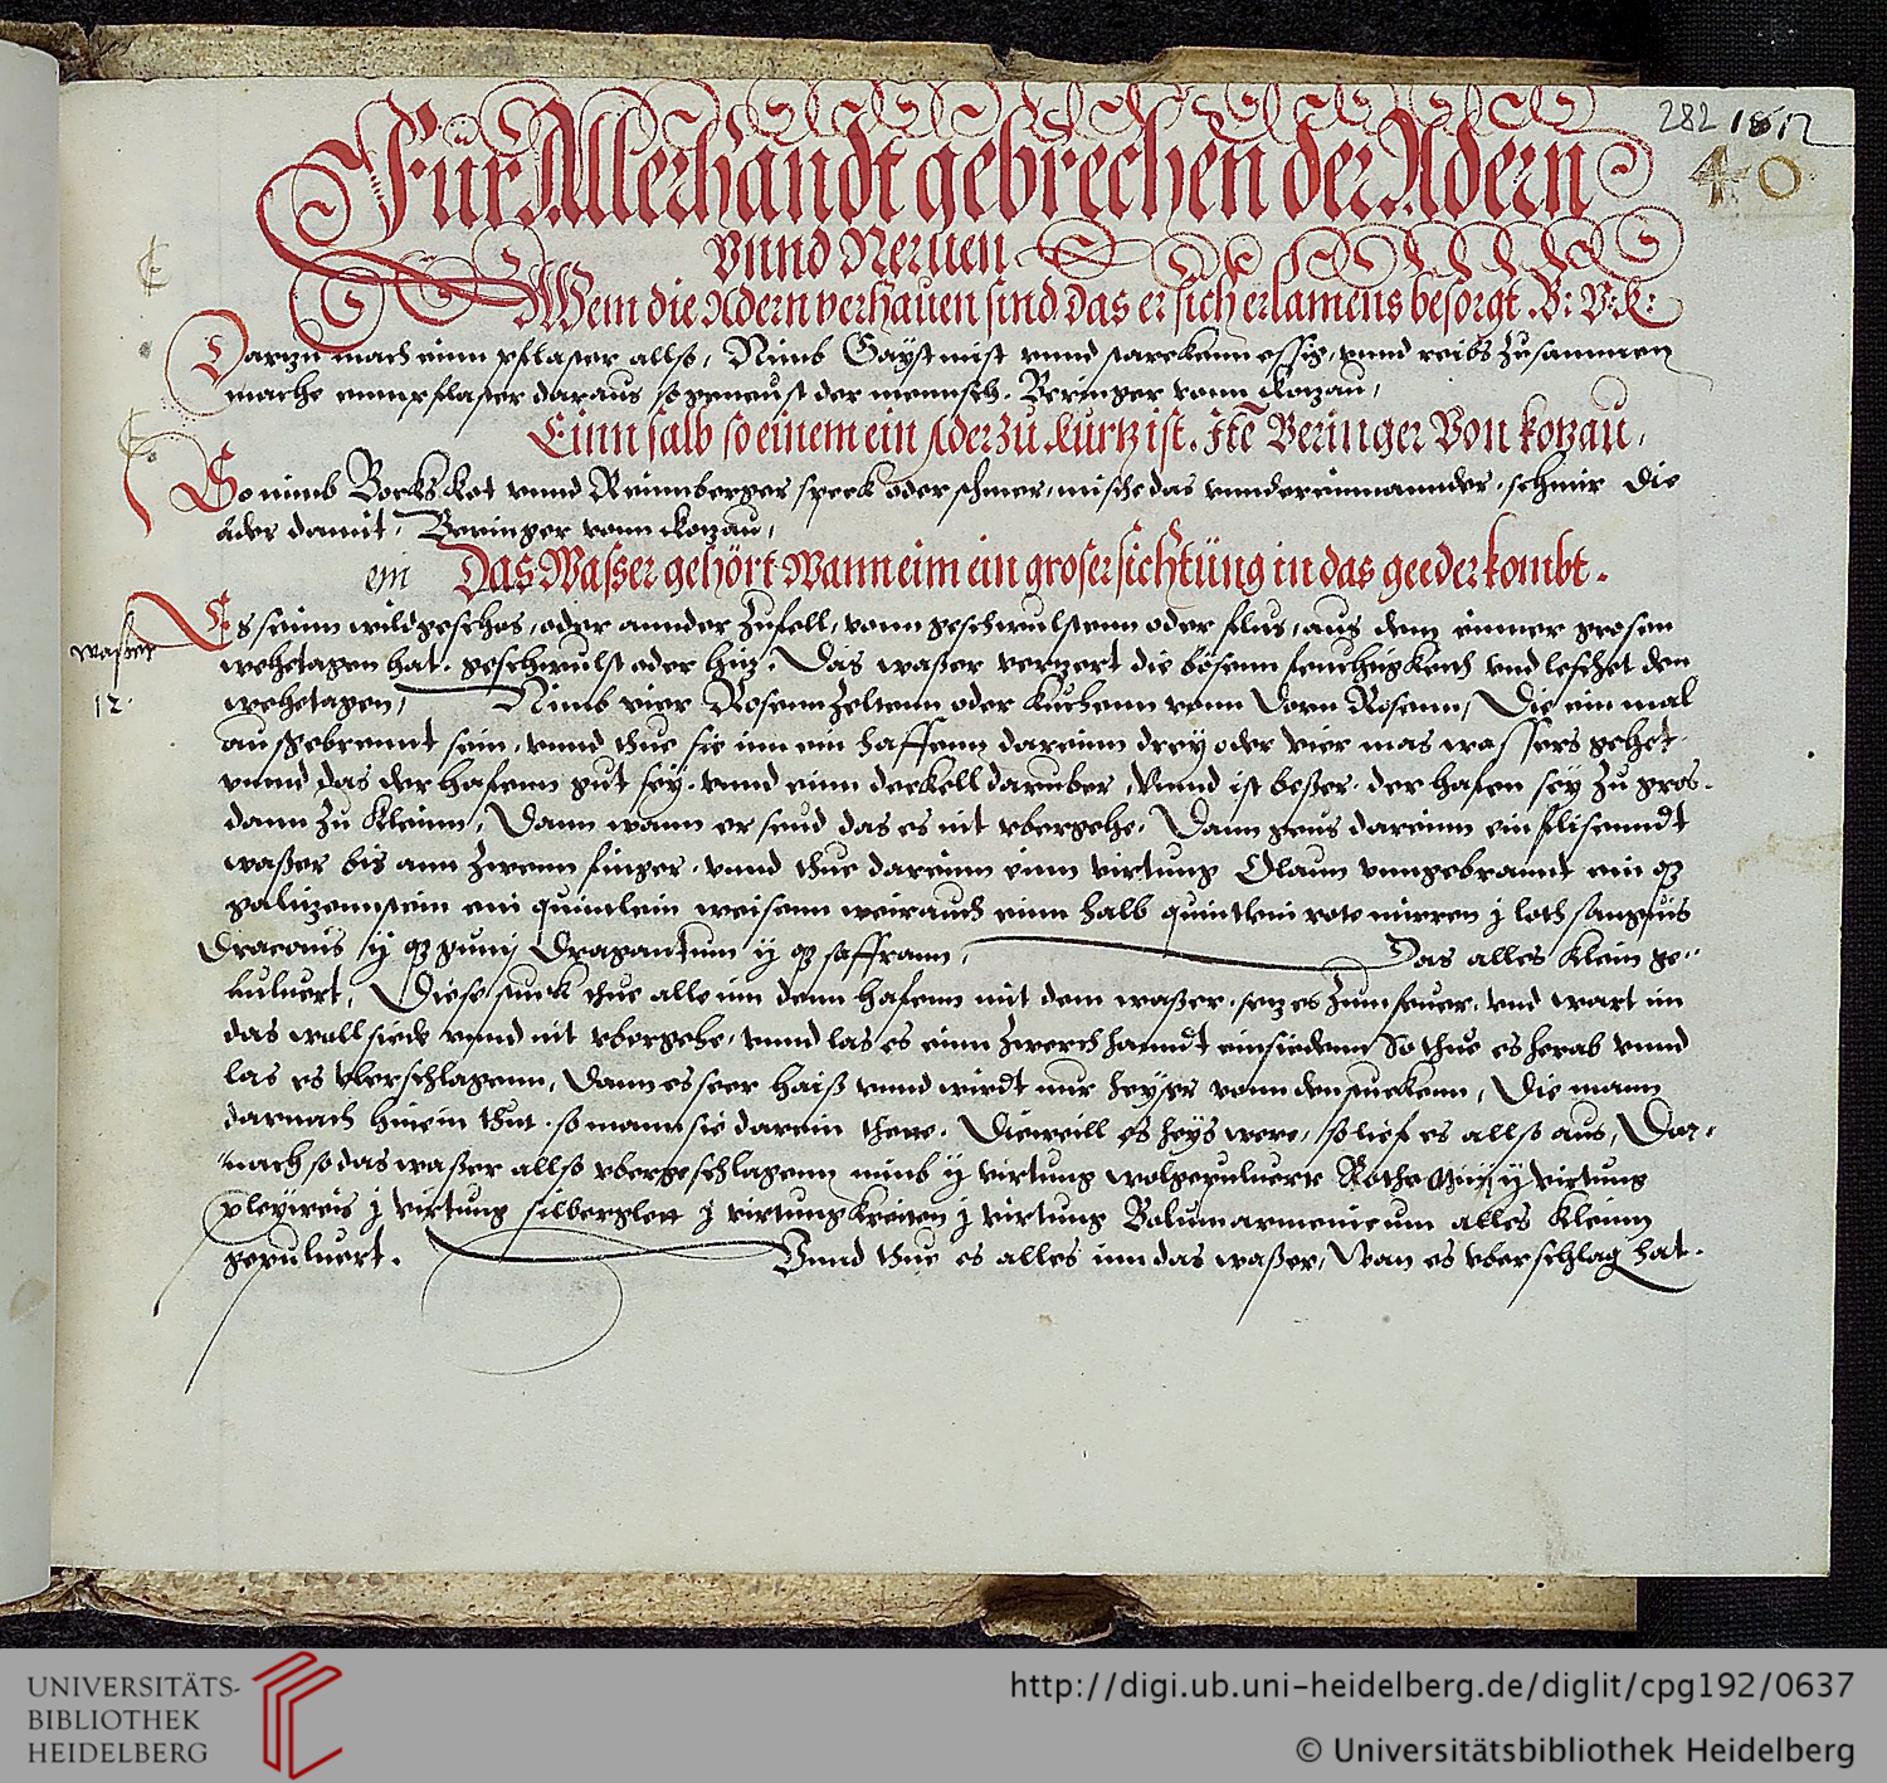 282 1812
40
Für Allerhandt gebrechen der Adern
Vnnd Neruen
Wem die Adern verhauen sind Das er sich erlamens besorgt. B: V: K:
Darzu mach einn pflaster allso, Nimb Gaystmist vnnd starckenn essig, vnnd reibs zusammen
mache einn pflaster daraus so geneust der mennsch. Beringer vonn Kozau,
Einn salb so einem ein Ader zu Kurtz ist. Ite Beringer Von kotzau,
So nimb Bocks kot vnnd Reinnberger speck oder schmer, mische das vnndereinnannder, schmir die
ader damit, Beringer vonn Kozau,
ein Das Wasser gehört Wann eim ein groser sichtüng in das geeder kombt.
waßer
12.
Es seinn wildgeschos, oder annder zufell, vonn geschwulstenn oder flus, aus dem einner grosen
wehetagen hat. geschwulst oder hiz. Das waßer verzert die bösenn feuchtigkeich vnd leschet den
wehetagen, Nimb vier Rosenn Zeltenn oder Kuchenn vonn Vorn Rosenn, Die ein mal
ausgebrennt sein, vnnd thue sie inn ein haffenn dareinn drey oder vier mas wassers gehet
vnnd das der hafenn gut sey. vnnd einn deckell daruber, Vnnd ist beßer. der hafen sey zu gros.
dann zu kleinn, Dann wann er seud das es nit vbergehe. Dann geus dareinn ein flisenndt
waßer bis ann zwenn finger. vnnd thue dareinn einn virtung Olaun vnngebrannt ein
galizennstein ein quintlein weisenn weirauch einn halb quintlein rote mirren j loth sanguis
Draconis ij gumj Dragantum ij saffrann, Das alles klein ge-
buluert, Diese stuck thue alle inn denn hafenn mit dem waßer. sez es zum feuer. vnd wart im
das woll siede vnnd nit vbergehe, vnnd las es einn zwerch hanndt einsiedenn So thue es herab vnnd
las es vberschlagenn, Dann es seer haiß vnnd wirdt nur heyser vonn den stuckenn, Die mann
darnach hinein thut. so mann sie darein thette. Dieweill es heys were, so lief es allso aus, Dar-
nach so das waßer allso vbergeschlagenn nimb ij virtung wolgepuluert Rothe ij virtung
pleyweis j virtung silberglett j virtung kreiten j virtung Bolum armenicum alles kleinn
gepuluert. Vnnd thue es alles inn das waßer, Wan es vberschlag hat.
UNIVERSITÄTS-
BIBLIOTHEK
HEIDELBERG
http://digi.ub.uni-heidelberg.de/diglit/cpg192/0637
© Universitätsbibliothek Heidelberg